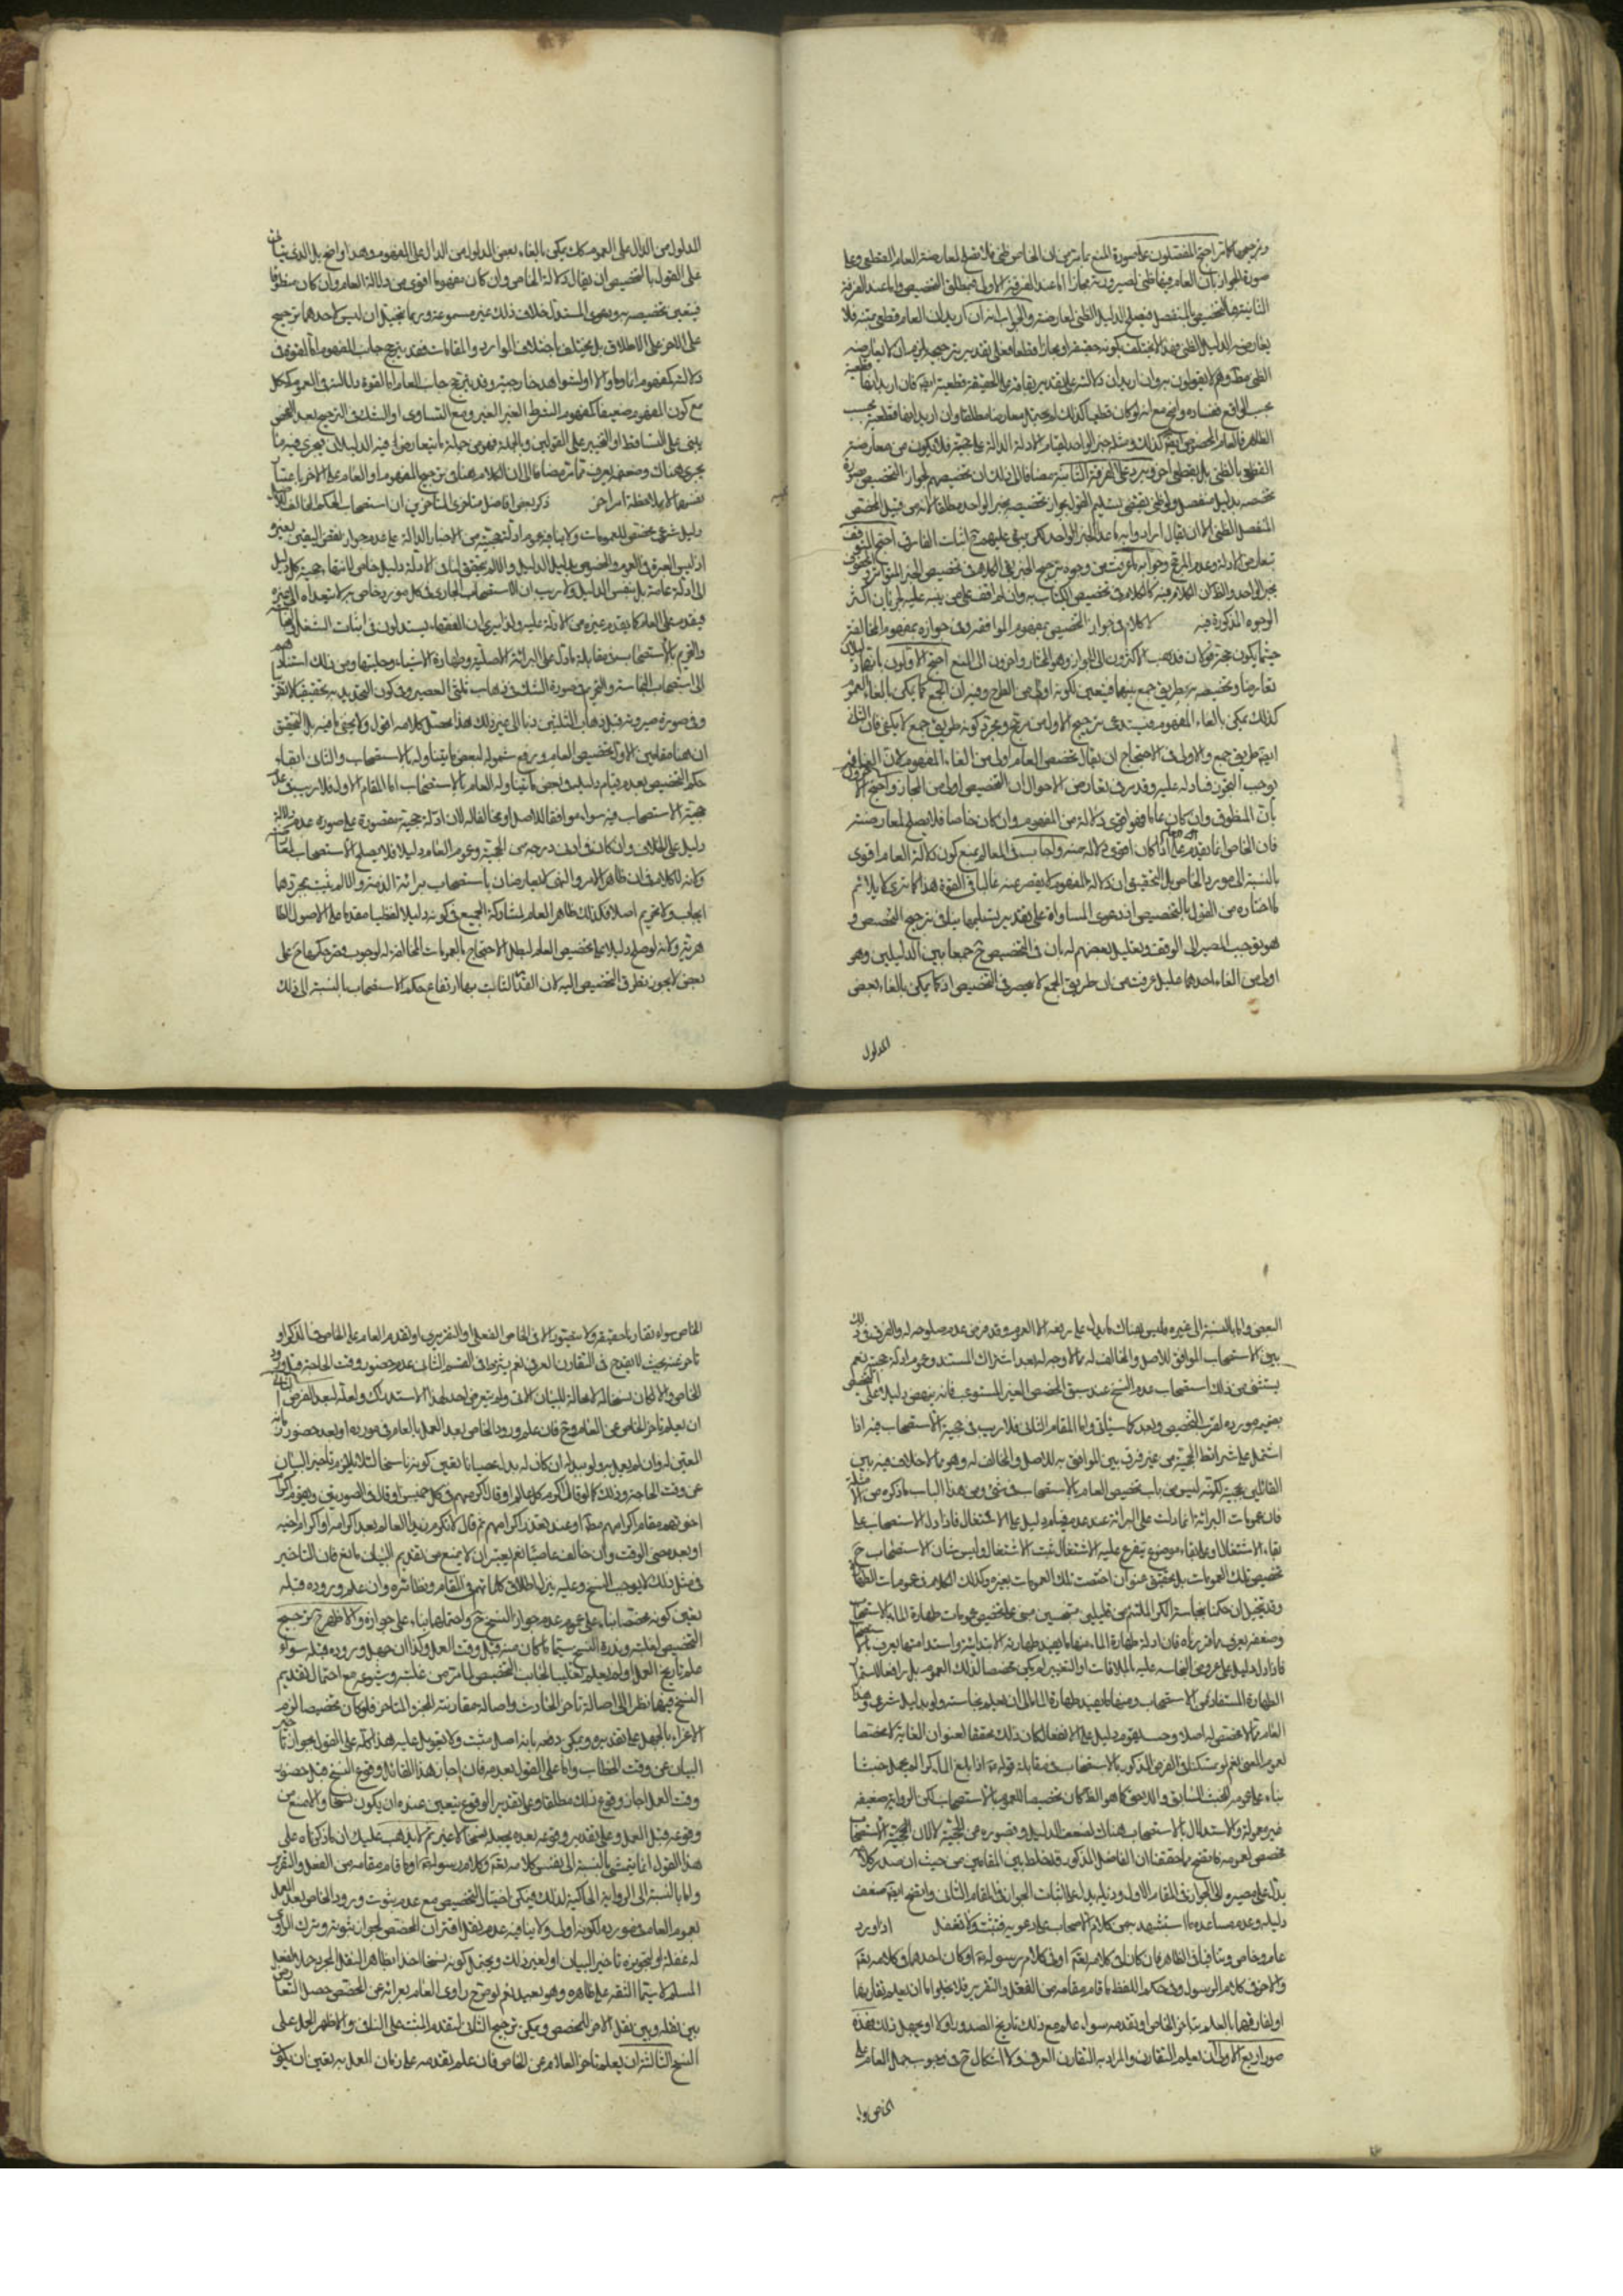 وترجيحها كما مر احتج المفصلون على صورة المنع بما مر من ان الخاص ظني فلا يصلح لمعارضة العام القطعي وعلى
صورة الجواز بان العام فيها ظني لصيرورته مجازا اما عند الفرقة الاولى فبمطلق التخصيص واما عند الفرقة
الثانية فبالتخصيص بالمنفصل فيصلح الدليل الظني لمعارضته والجواب انه ان اريد ان العام قطعي متنه فلا
يعارضه الدليل الظني فهذا لا يختلف بكونه حقيقة او مجازا قطعا فعلى تقدير ترجيحه لزم ان لا يعارضه
الظني مطلقا وهم لا يقولون به وان اريد ان دلالته على تقدير بقائه على الحقيقة قطعية ايضا فان اريد انها قطعية
بحسب الواقع ففساده واضح مع انه لو كان قطعيا كذلك لم يحتمل معارضا مطلقا وان اريد انها قطعية بحسب
الظاهر فالعام المخصوص ايضا كذلك ومثله خبر الواحد لقيام الادلة الدالة على حجيته فلا يكون من معارضة
القطعي بالظني بل بقطعي اخر ويرد على الفرقة الثانية مضافا الى ذلك ان تخصيصهم لجواز التخصيص بصورة
تخصصه بدليل منفصل ولو ظني يقتضي تسليم القول بجواز تخصيصه بخبر الواحد مطلقا لانه من قبيل المخصص
المنفصل الظني الا ان يقال ارادوا به ما عدا الخبر الواحد لكن يبقى عليهم ح اثبات الفارق احتج المتوقف
بتعارض الادلة وعدم المرجح وجوابه ما عرفت من وجوه ترجيح الخبر بقي الكلام في تخصيص الخبر المتواتر والمحفوف
بخبر الواحد والظ ان الكلام فيه كالكلام في تخصيص الكتاب به وان لم اقف على من ينبه عليه لجريان اكثر
الوجوه المذكورة فيه لا كلام في جواز التخصيص بمفهوم الموافقة وفي جوازه بمفهوم المخالفة
حيثما يكون حجة قولان فذهب الاكثرون الى الجواز وهو المختار واخرون الى المنع احتج الاولون بانهما دليلان
تعارضا وتخصيصه به طريق جمع بينهما فيتعين لكونه اولى من الطرح وفيه ان الجمع كما يمكن بالغاء العموم
كذلك يمكن بالغاء المفهوم فيستدعي ترجيح الاول من مرجح ومجرد كونه طريق جمع لا يكفي فان الثاني
ايضا طريق جمع والاولى في الاحتجاج ان يقال تخصيص العام اولى من الغاء المفهوم
يوجب التجوز فيما دل عليه وقد مر في تعارض الاحوال ان التخصيص اولى من المجاز واحتج
بان المنطوق وان كان عاما فهو اقوى دلالة من المفهوم وان كان خاصا فلا يصلح لمعارضته
فان الخاص انما يقدم على العام اذا كان اقوى دلالة منه واجاب في المعالم بمنع كون دلالة العام اقوى
بالنسبة الى مورد الخاص بل التحقيق ان دلالة المفهوم لا يقصر عنه غالبا في القوة هذا كما ترى لا يلائم
ما اختاره من القول بالتخصيص اذ دعوى المساواة على تقدير تسليمها ينافي ترجيح التخصيص و
هو يوجب المصير الى الوقف وتعليل بعضهم له بان في التخصيص ح جمعا بين الدليلين وهو
اولى من الغاء احدهما عليل لما عرفت من ان طريق الجمع لا ينحصر في التخصيص اذ كما يمكن بالغاء بعض
المدلول
المدلول من الدال على العموم كك يمكن بالغاء بعض المدلول من الدال على المفهوم وهذا واضح بل الذي ينبغي ان
على القول بالتخصيص ان يقال دلالة الخاص وان كان مفهوما اقوى من دلالة العام وان كان منطوقا
فيتعين تخصيصه به ودعوى المستدل خلاف ذلك غير مسموعة وربما يتخيل ان ليس لاحدهما ترجيح
على الاخر على الاطلاق بل يختلف باختلاف الموارد والمقامات فقد يترجح جانب المفهوم اما لقوة في
دلالته كمفهوم انما وما والا او لشواهد خارجية وقد يترجح جانب العام اما لقوة دلالته في العموم ككل
مع كون المفهوم ضعيفا كمفهوم الشرط الغير المعتبر ومع التساوي او الشك في الترجيح بعد الفحص
يبنى على التساقط او التخيير على القولين وبالجملة فهو من جملة ما يتعارض فيه الدليلان فيجري فيه ما
يجري هناك وضعفه يعرف مما مر مضافا الى ان الكلام هنا في ترجيح المفهوم او العام على الاخر باعتبار
نفسهما لا بملاحظة امر اخر ذكر بعض افاضل متاخري المتاخرين ان استصحاب الحكم المخالف للاصل
دليل شرعي مخصص للعمومات ولا ينافيه عموم ادلة حجيته من الاخبار الدالة على عدم جواز نقض اليقين بغيره
اذ ليس العبرة في العموم والخصوص بدليل الدليل والا لم يتحقق لنا في الادلة دليل خاص لانتهاء حجية كل دليل
الى ادلة عامة بل بنفس الدليل ولا ريب ان الاستصحاب الجاري في كل مورد خاص به لا يتعداه الى غيره
فيقدم على العام كما يقدم غيره من الادلة عليه ولذا ترى ان الفقهاء يستدلون في اثبات الشغل
والتحريم بالاستصحاب في مقابلة ما دل على البرائة الاصلية وطهارة الاشياء وحليتها ومن ذلك استنادهم
الى استصحاب النجاسة والتحريم في صورة الشك في ذهاب ثلثي العصير وفي كون التحديد به تحقيقيا لا تقريبيا
وفي صورة صيرورته قبل ذهاب الثلثين دبسا الى غير ذلك هذا محصل كلامه اقول ولا يخفى ما فيه بل التحقيق
ان هنا مقامين الاول تخصيص العام ورفع شموله لبعض ما يتناوله بالاستصحاب والثاني ابقاء
حكم التخصيص بعد قيام دليله في بعض ما يتناوله العام بالاستصحاب اما المقام الاول فلا ريب في عدم
حجية الاستصحاب فيه سواء كان موافقا للاصل او مخالفا له لان ادلة حجيته مقصورة على صورة عدم دلالة
دليل على الخلاف وان كان في ادنى درجة من الحجية وعموم العام دليل فلا يصلح الاستصحاب لمعارضته
وكانه لا كلام في ان ظاهر الامر والنهي لا يعارضان باستصحاب برائة الذمة والا لم يثبت بمجردهما
ايجاب ولا تحريم اصلا فكذلك ظاهر العام لمشاركة الجميع في كونه دليلا لفظيا مقدما على الاصول الظا
هرية ولانه لو صلح دليلا على تخصيص العام لبطل الاحتجاج بالعمومات المخالفة له لوجوب قصر حكمها ح على
بعض لا يجوز تطرق التخصيص اليه لان القدر الثابت بها ارتفاع حكم الاستصحاب بالنسبة الى ذلك
البعض واما بالنسبة الى غيره فليس هناك ما يدل على رفعه الا العموم وقد فرض عدم صلوحه له والفرق في ذلك
بين الاستصحاب الموافق للاصل والمخالف له مما لا وجه له بعد اشتراك المستند وعموم ادلة حجيته نعم
يستثنى من ذلك استصحاب عدم النسخ عند سبق المخصص الغير المستوعب فانه ينهض دليلا على
بعض مورده لقرب التخصيص وبعد كما سياتي واما المقام الثاني فلا ريب في حجية الاستصحاب فيه اذا
اشتمل على شرائط الحجية من غير فرق بين الموافق به للاصل والمخالف له وهو مما لا خلاف فيه بين
القائلين بحجيته لكنه ليس من باب تخصيص العام بالاستصحاب في شئ ومن هذا الباب ما ذكره من الامثلة
فان عمومات البرائة انما دلت على البرائة عند عدم قيام دليل على الاشتغال فاذا دل الاستصحاب على
بقاء الاشتغال او على بقاء موضوع يتفرع عليه الاشتغال ثبت الاشتغال وليس شان الاستصحاب ح
تخصيص تلك العمومات بل تحقيق عنوان اختصت تلك العمومات بغيره وكذلك الكلام في عمومات الطهارة
وقد يتخيل ان حكمنا بنجاسة الكر الملتئم من قليلين متنجسين مبني على تخصيص عمومات طهارة الماء بالاستصحاب
وضعفه يعرف مما قررناه فان ادلة طهارة الماء منها ما يفيد طهارته الابتدائية واستدامتها يعرف بالاستصحاب
فاذا دل دليل على عروض النجاسة عليه بالملاقات او التغيير لم يكن مخصصا لذلك العموم بل رافعا لاستمرار
الطهارة المستفاد من الاستصحاب ومنها ما يفيد طهارة الماء الى ان يعلم نجاسته ولو بدليل شرعي وهذا
العام مما لا مخصص له اصلا وحيث يقوم دليل على الانفعال كان ذلك محققا لعنوان الغاية لا مخصصا
لعموم المغيى نعم لو تمسكنا في الفرض المذكور بالاستصحاب في مقابلة قوله ع اذا بلغ الماء كرا لم يحمل خبثا
بناء على عموم الخبث للسابق واللاحق كما هو الظ كان تخصيصا للعموم بالاستصحاب لكن الرواية ضعيفة
غير معمولة والاستدلال بالاستصحاب هناك لضعف الدليل وقصوره عن الحجية لا لان الاستصحاب
مخصص لعمومه فاتضح مما حققنا ان الفاضل المذكور قد خلط بين المقامين من حيث ان صدر كلامه
يدل على مصيره الى الجواز في المقام الاول وذيله يدل على اثبات الجواز في المقام الثاني واتضح ايضا ضعف
دليله وعدم مساعدة ما استشهد به من كلام الاصحاب على دعويه فتثبت ولا تغفل اذا ورد
عام وخاص وتنافيا في الظاهر فان كانا في كلامه تعالى او في كلام رسوله ص او كان احدهما في كلامه تعالى
والاخر في كلام الرسول وفي حكم اللفظ ما قام مقامه من الفعل والتقرير فلا يخلو اما ان يعلم تقارنهما
او تفارقهما بالعلم بتاخر الخاص او تقدمه سواء علم مع ذلك تاريخ الصدور او لا او يجهل ذلك فهذه
صور اربع الاولى ان يعلم التقارن والمراد به التقارن العرفي ولا اشكال ح في وجوب حمل العام على
الخاص سوا
الخاص سواء تقارنا حقيقة ولا يتصور الا في الخاص الفعلي او التقريري او تقدم العام على الخاص في الذكر او
تاخر عنه بحيث لا يقدح في التقارن العرفي نعم يشترط في القسم الثاني عدم حضور وقت الحاجة قبل ورود
الخاص والا لكان نسخا لا محالة للبيان الاتي ولم يتعرض احد لهذا الاستدراك ولعله لبعد الفرض الثانية
ان يعلم تاخر الخاص عن العام وح فان علم ورود الخاص بعد العمل بالعام في مورده او بعد حضور زمانه
المعين له وان لم يعمل به ولو ببدله ان كان له بدل عصيانا تعين كونه ناسخا لئلا يلزم تاخير البيان
عن وقت الحاجة وذلك كما لو قال اكرم كل عالم او قال اكرمهم في كل خميس او قال في الصورتين ويقوم اكرام
اخوتهم مقام اكرامهم مطلقا او عند تعذر اكرامهم ثم قال لا تكرم زيدا العالم بعد اكرامه او اكرام اخيه
او بعد مضي الوقت وان خالف عاصيا نعم يعتبر ان لا يمنع من تقديم البيان مانع فان التاخير
في مثل ذلك لا يوجب النسخ وعليه ينزل اطلاق كلماتهم في المقام ونظائره وان علم وروده قبله
تعين كونه مخصصا بناء على عدم جواز النسخ ح واحتملهما بناء على جوازه والاظهر ح ترجيح
التخصيص لغلبته وندرة النسخ سيما ما كان منه قبل وقت العمل وكذا ان جهل وروده قبله سواء
علم تاريخ العمل او لم يعلم تغليبا لجانب التخصيص لما مر من غلبته وشيوعه مع احتمال تقديم
النسخ فيهما نظرا الى اصالة تاخر الحادث واصالة مقارنته للجزء المتاخر فلو كان تخصيصا لزم
الاغراء بالجهل على تقديره ويمكن دفعه بانه اصل مثبت ولا تعويل عليه هذا كله على القول بجواز تاخير
البيان عن وقت الخطاب واما على القول بعدمه فان اجاز هذا القائل وقوع النسخ قبل حضور
وقت العمل اجاز وقوع ذلك مطلقا وعلى تقدير الوقوع يتعين عنده ان يكون نسخا والا منع من
وقوعه قبل العمل وعلى تقدير وقوعه بعده يجعله نسخا لا غير ثم لا يذهب عليك ان ما ذكرناه على
هذا القول انما يتمشى بالنسبة الى نفس كلامه تعالى وكلام رسوله ص او ما قام مقامه من الفعل والتقرير
واما بالنسبة الى الرواية الحاكية لذلك فيمكن اختيار التخصيص مع عدم ثبوت ورود الخاص بعد العمل
بعموم العام في مورده لكونه اولى ولا ينافيه عدم نقل اقتران المخصص لجواز ثبوته وترك الراوي
له غفلة او لتجويزه تاخير البيان او لغير ذلك ويحتمل كونه نسخا اخذا بظاهر النقل المجرد حملا لفعل
المسلم لا سيما الثقة على ظاهره وهو بعيد نعم لو صرح راوي العام بعرائه عن المخصص حصل التعارض
بين نقله وبين نقل الاخر للمخصص ويمكن ترجيح الثاني لتقدم المثبت على النافي والاظهر الحمل على
النسخ الثالثة ان يعلم تاخر العام عن الخاص فان علم تقدمه على زمان العمل به تعين ان يكون